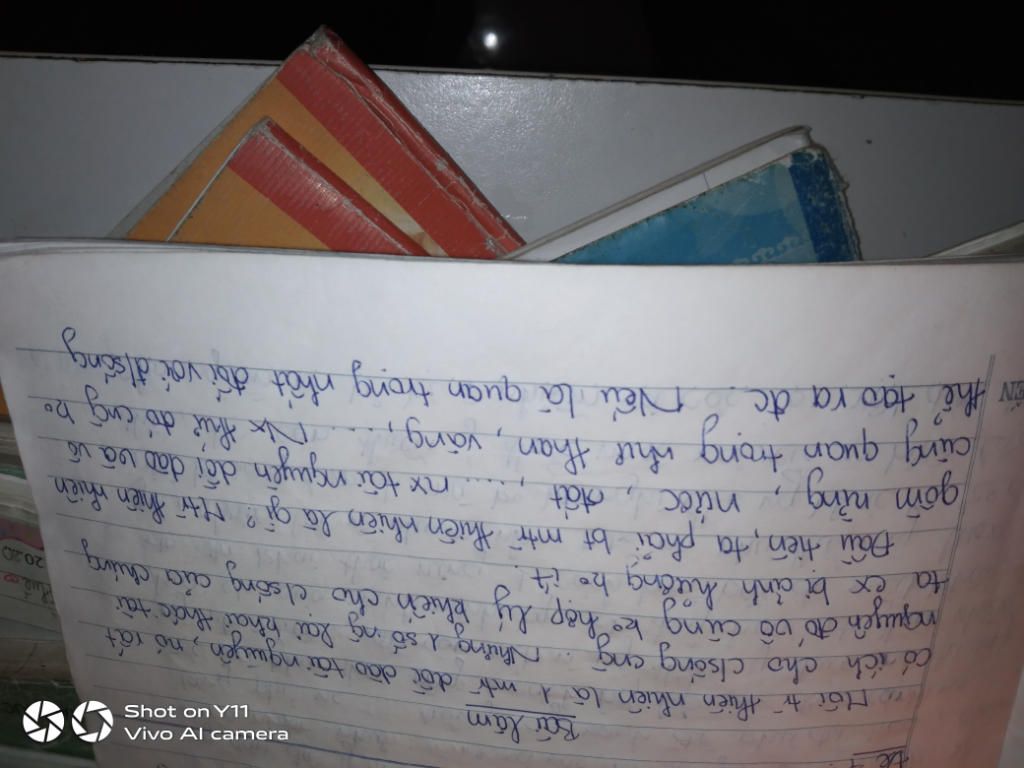 Bài làm
Môi tr thiên nhiên là 1 mtr dồi dào tài nguyên, nó rất
có ích cho c/sống cng. Nhưng 1 số ng lại khai thác tài
nguyên đó vô cùng ko hợp lý khiến cho c/sống của chúng
ta cx bị ảnh hưởng ko ít.
Đầu tiên, ta phải bt mtr thiên nhiên là gì? Mtr thiên nhiên
gồm rừng, nước, đất, ..... nx tài nguyên dồi dào và vô
cùng quan trọng như than, vàng, .... Nx thứ đó cng ko
thể tạo ra đc. Nếu là quan trọng nhất đối với đ/sống
Shot on Y11
Vivo AI camera
2020